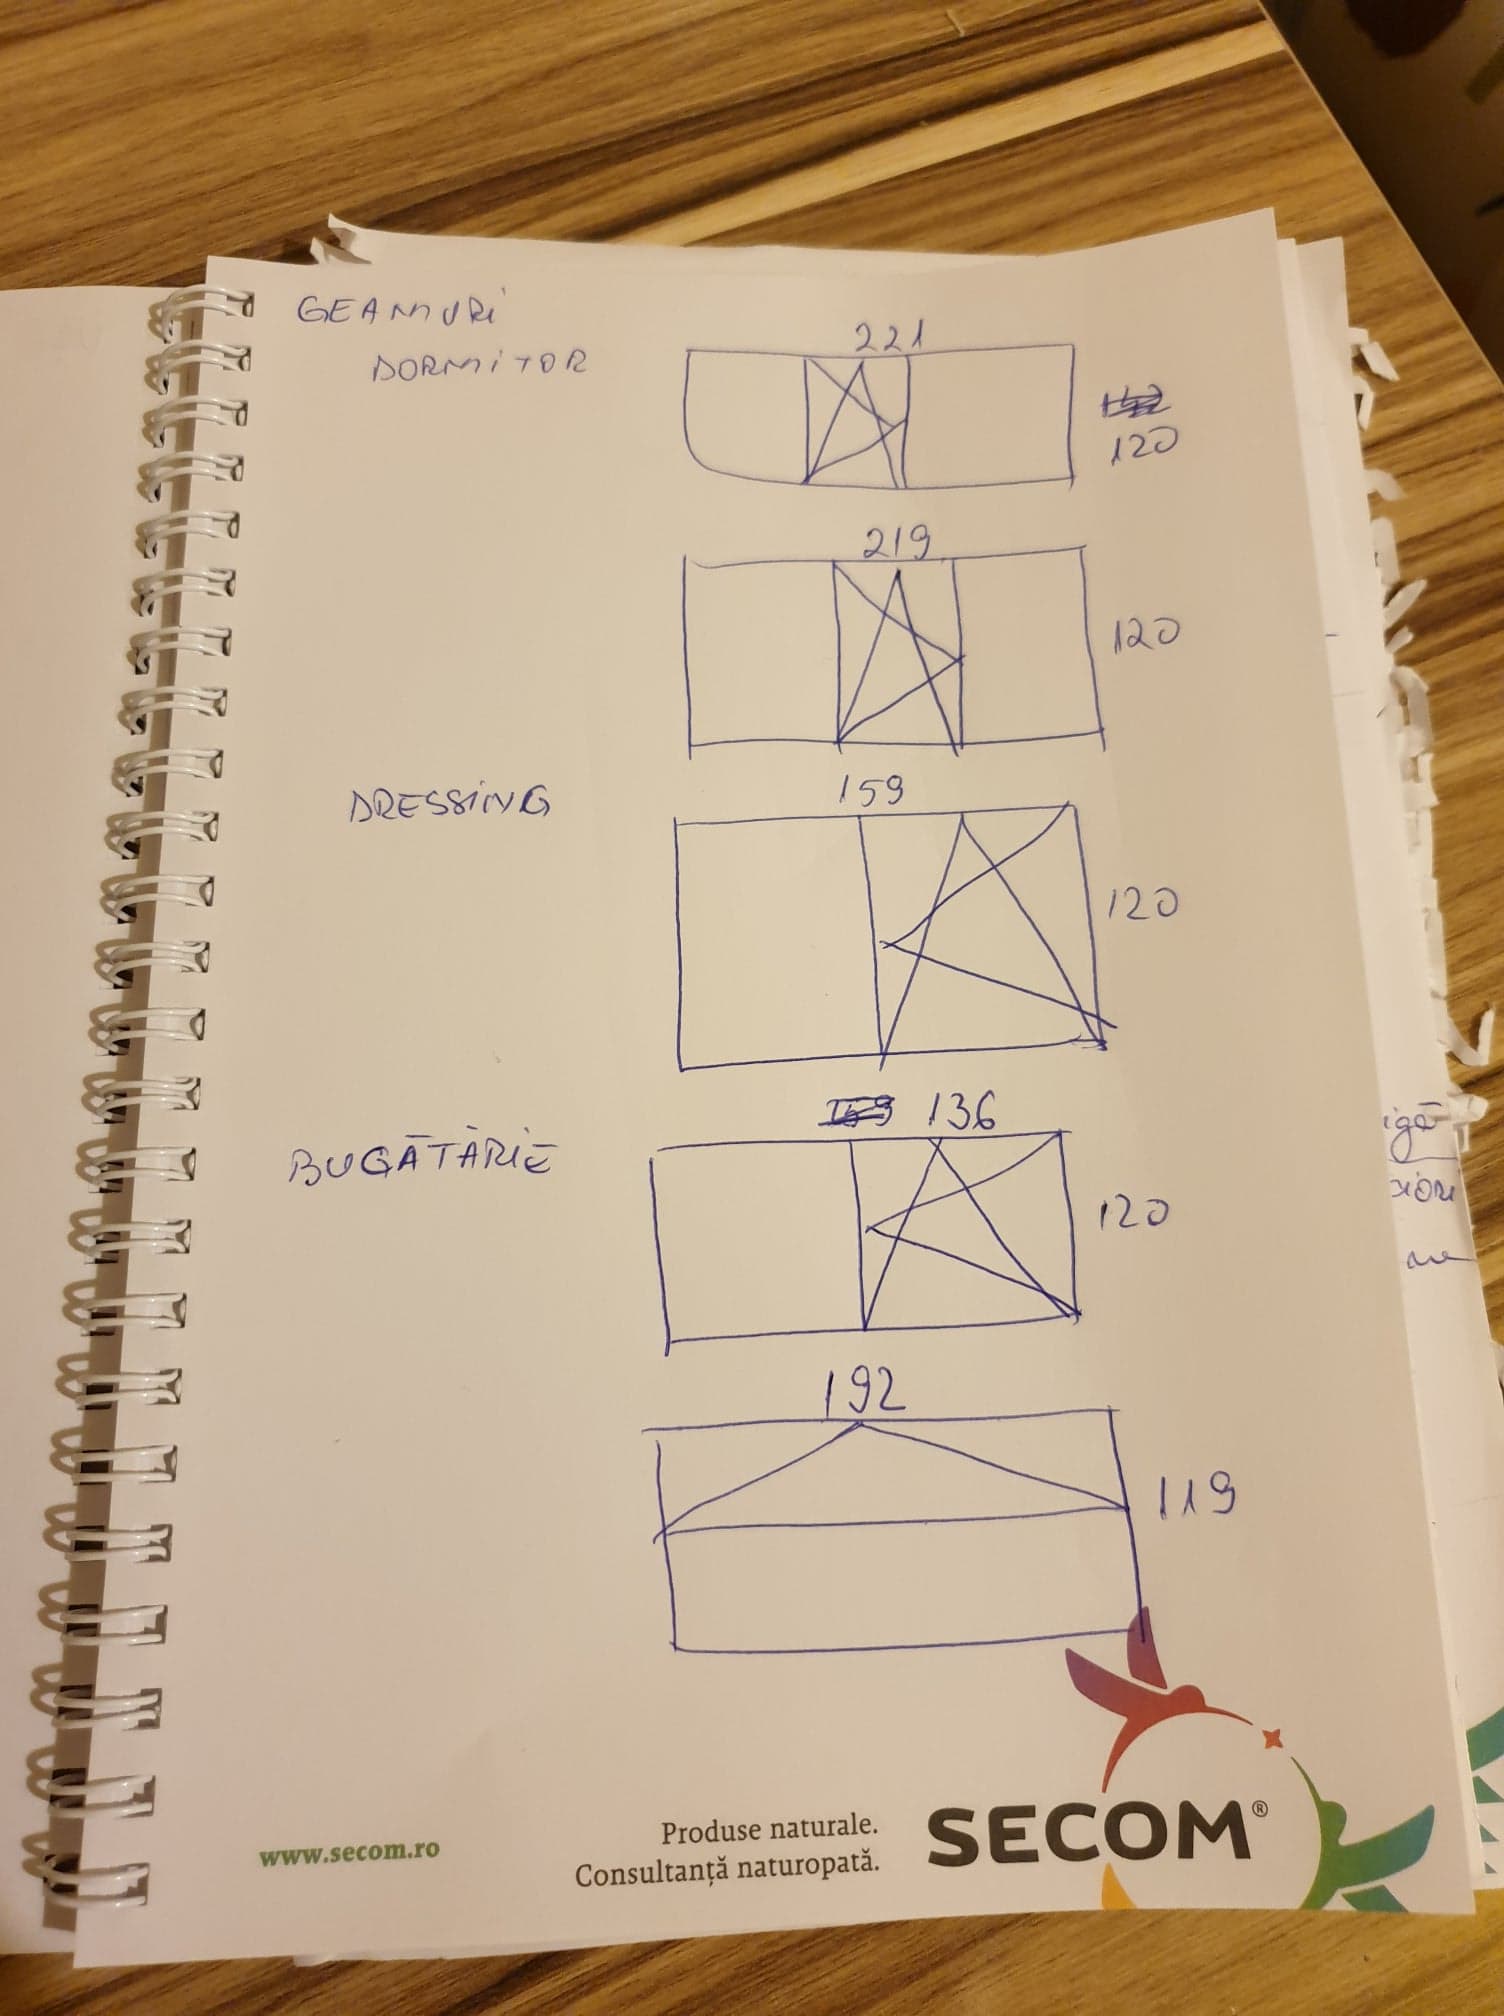 GEAMURI
DORMITOR
221
120
219
120
DRESSING
159
120
136
BUGĂTĂRIE
120
192
119
www.secom.ro
Produse naturale.
Consultanță naturopată.
SECOM®